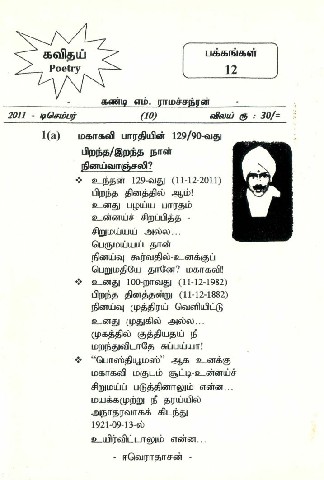 கவிதய்
Poetry
பக்கங்கள்
12
- கண்டி எம். ராமச்சந்ரன் -
2011 - டிசெம்பர் (10) விலய் ரூ : 30/=
1(a) மகாகவி பாரதியின் 129/90-வது
பிறந்த/இறந்த நாள்
நினய்வாஞ்சலி?
❖ உந்தன 129-வது (11-12-2011)
பிறந்த தினத்தில் ஆம்!
உனது பழய்ய பாரதம்
உன்னய்ச் சிறப்பித்த -
சிறுமய்யய் அல்ல...
பெருமய்யய் தான்
நினய்வு கூர்வதில்-உனக்குப்
பெறுமதியே தானே? மகாகவி!
❖ உனது 100-றாவது (11-12-1982)
பிறந்த தினத்தன்று (11-12-1882)
நினய்வு முத்திரய் வெளியிட்டு
உனது முதுகில் அல்ல...
முகத்தில் குத்தியதய் நீ
மறந்துவிடாதே சுப்பய்யா!
❖ "பொஸ்தியூமஸ்" ஆக உனக்கு
மகாகவி மகுடம் சூட்டி-உன்னய்ச்
சிறுமய்ப் படுத்தினாலும் என்ன...
மயக்கமுற்று நீ தரய்யில்
அநாதரவாகக் கிடந்து
1921-09-13-ல்
உயிர்விட்டாலும் என்ன...
- ஈவெராதாசன் -